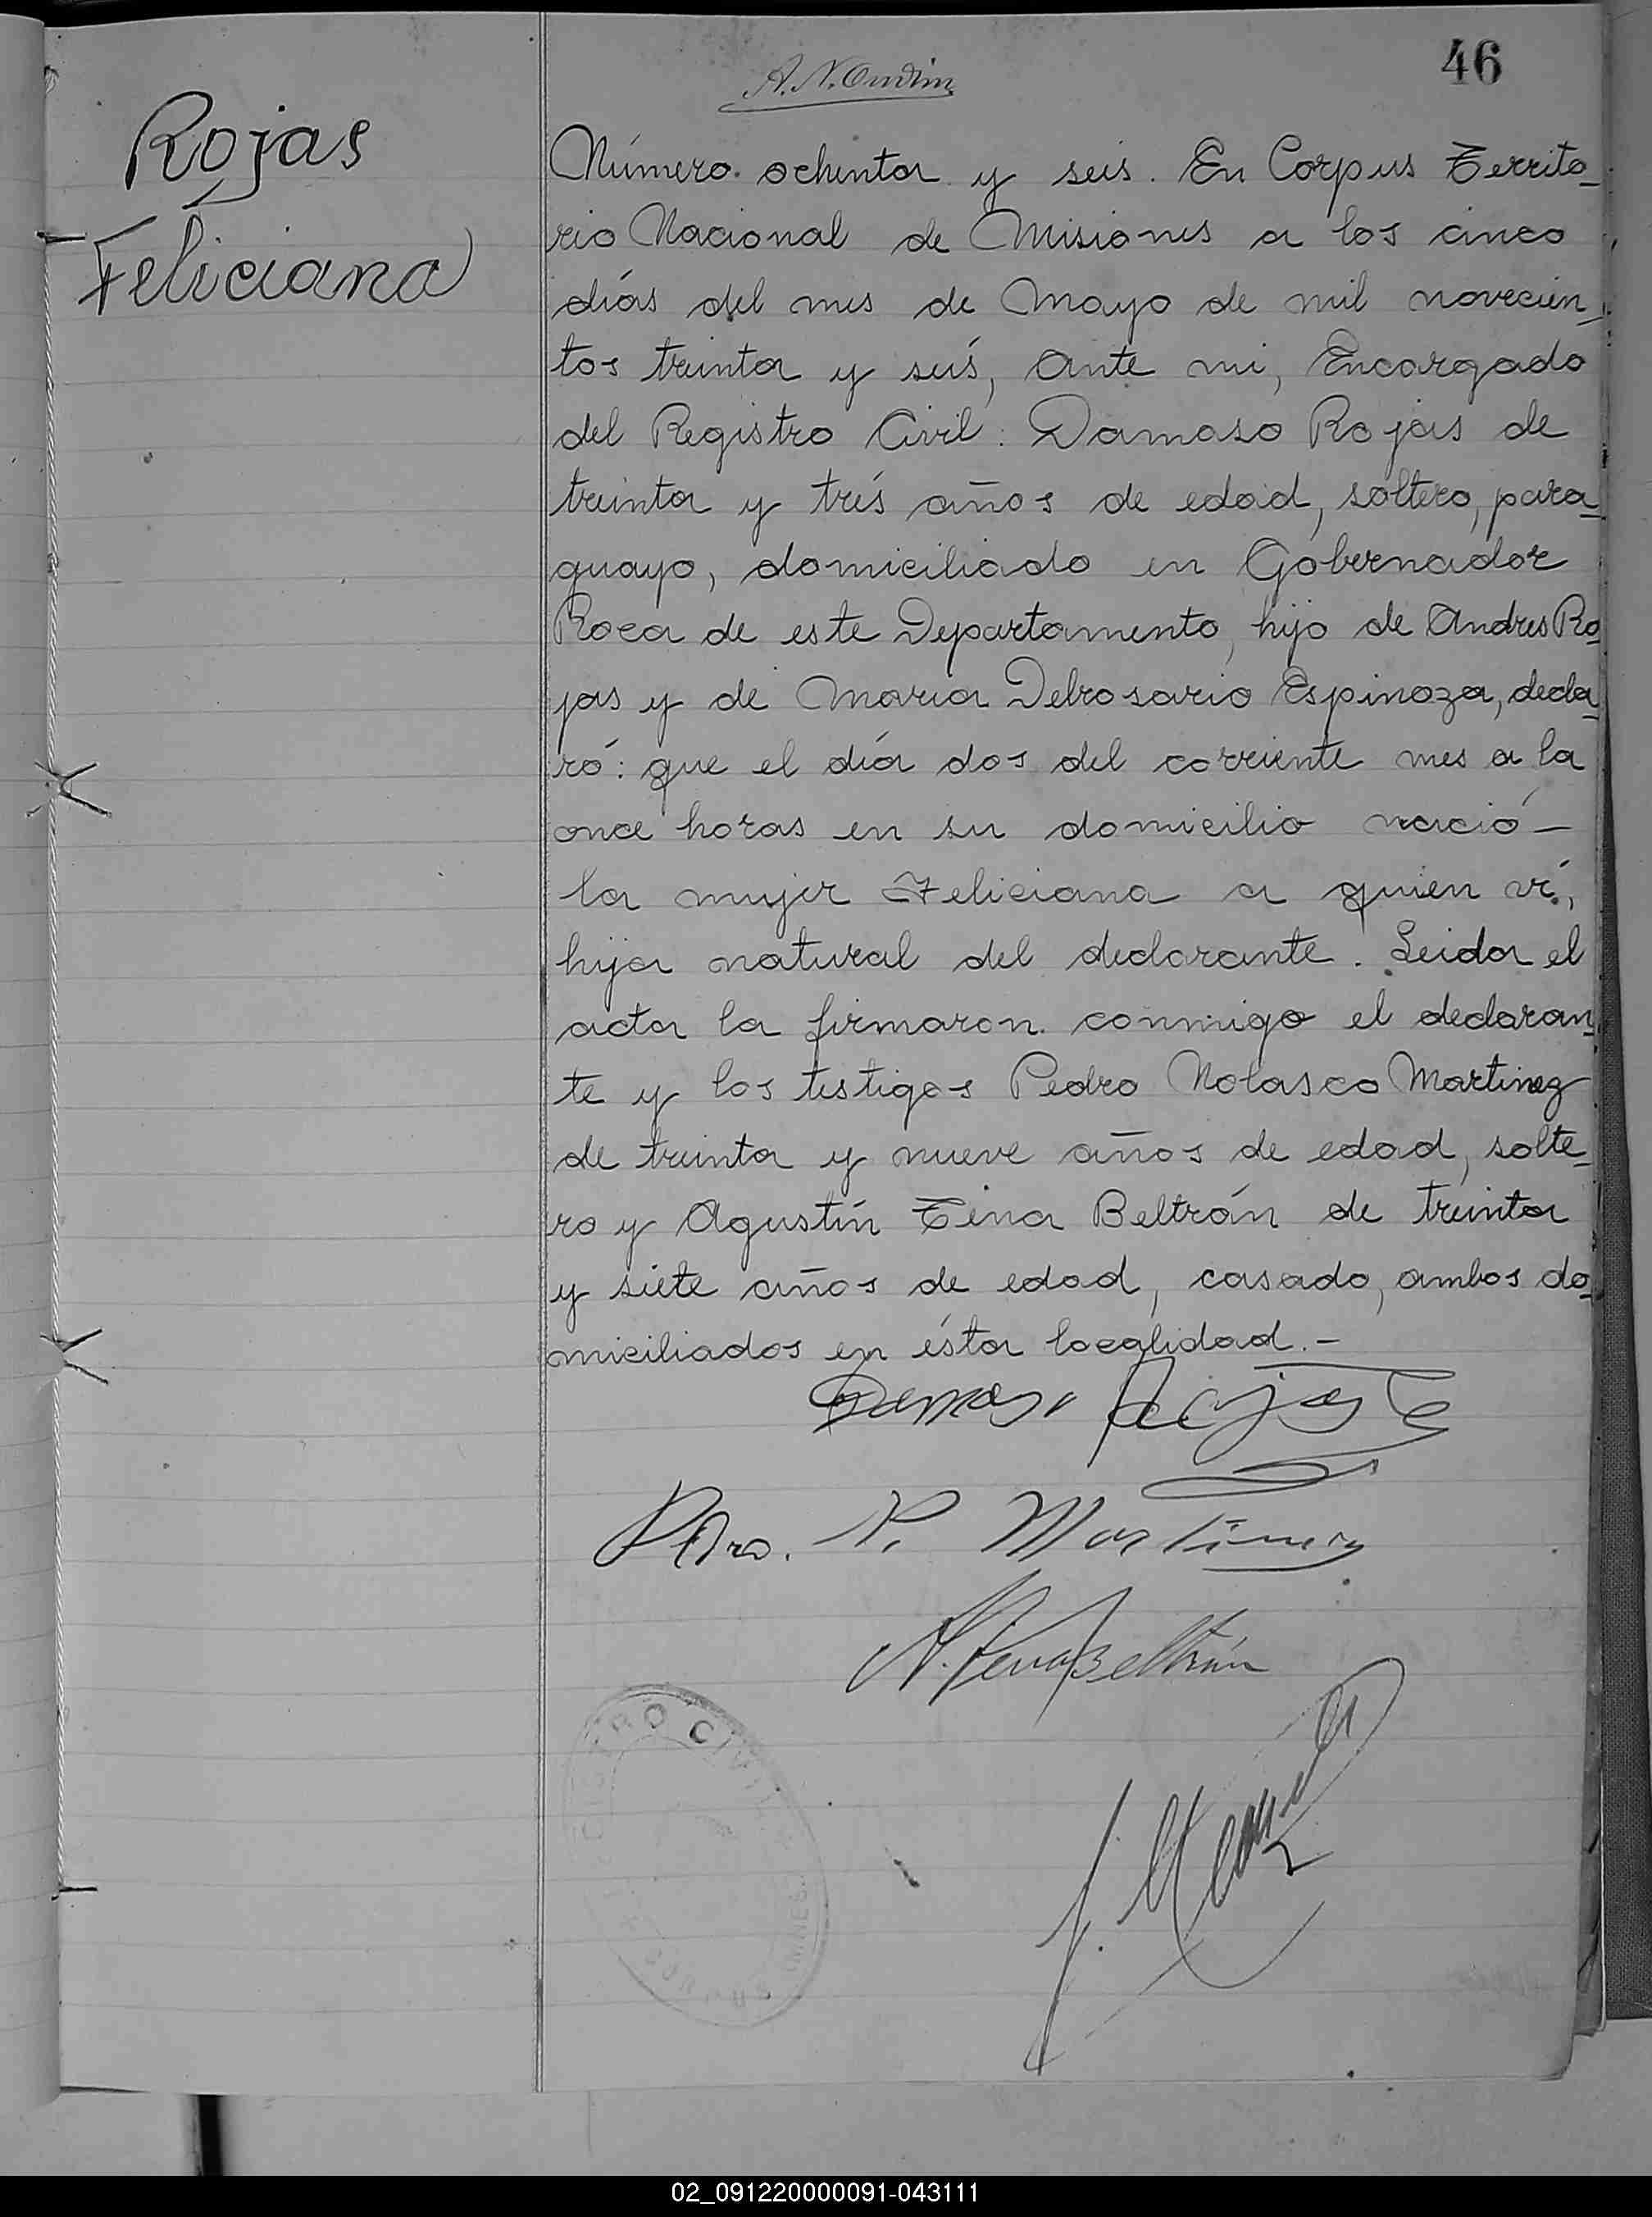 46
Rojas
Feliciana
Número ochenta y seis. En Corpus Territo-
rio Nacional de Misiones a los cinco
días del mes de Mayo de mil novecien-
tos treinta y seis, ante mi, Encargado
del Registro Civil: Damaso Rojas de
treinta y trés años de edad, soltero, para-
guayo, domiciliado en Gobernador
Roca de este Departamento, hijo de Andres Ro-
jas y de Maria Delrosario Espinoza, decla-
ró: que el día dos del corriente mes a la
once horas en su domicilio nació —
la mujer Feliciana a quien ví,
hija natural del declarante. Leida el
acta la firmaron conmigo el declaran-
te y los testigos Pedro Nolasco Martinez
de treinta y nueve años de edad, solte-
ro y Agustín Tena Beltrán de treinta
y siete años de edad, casado, ambos do-
miciliados en ésta localidad. —
Damaso Rojas
Pdro. N. Martinez
A. Tena Beltrán
REGISTRO CIVIL
CORPUS
02_091220000091-043111